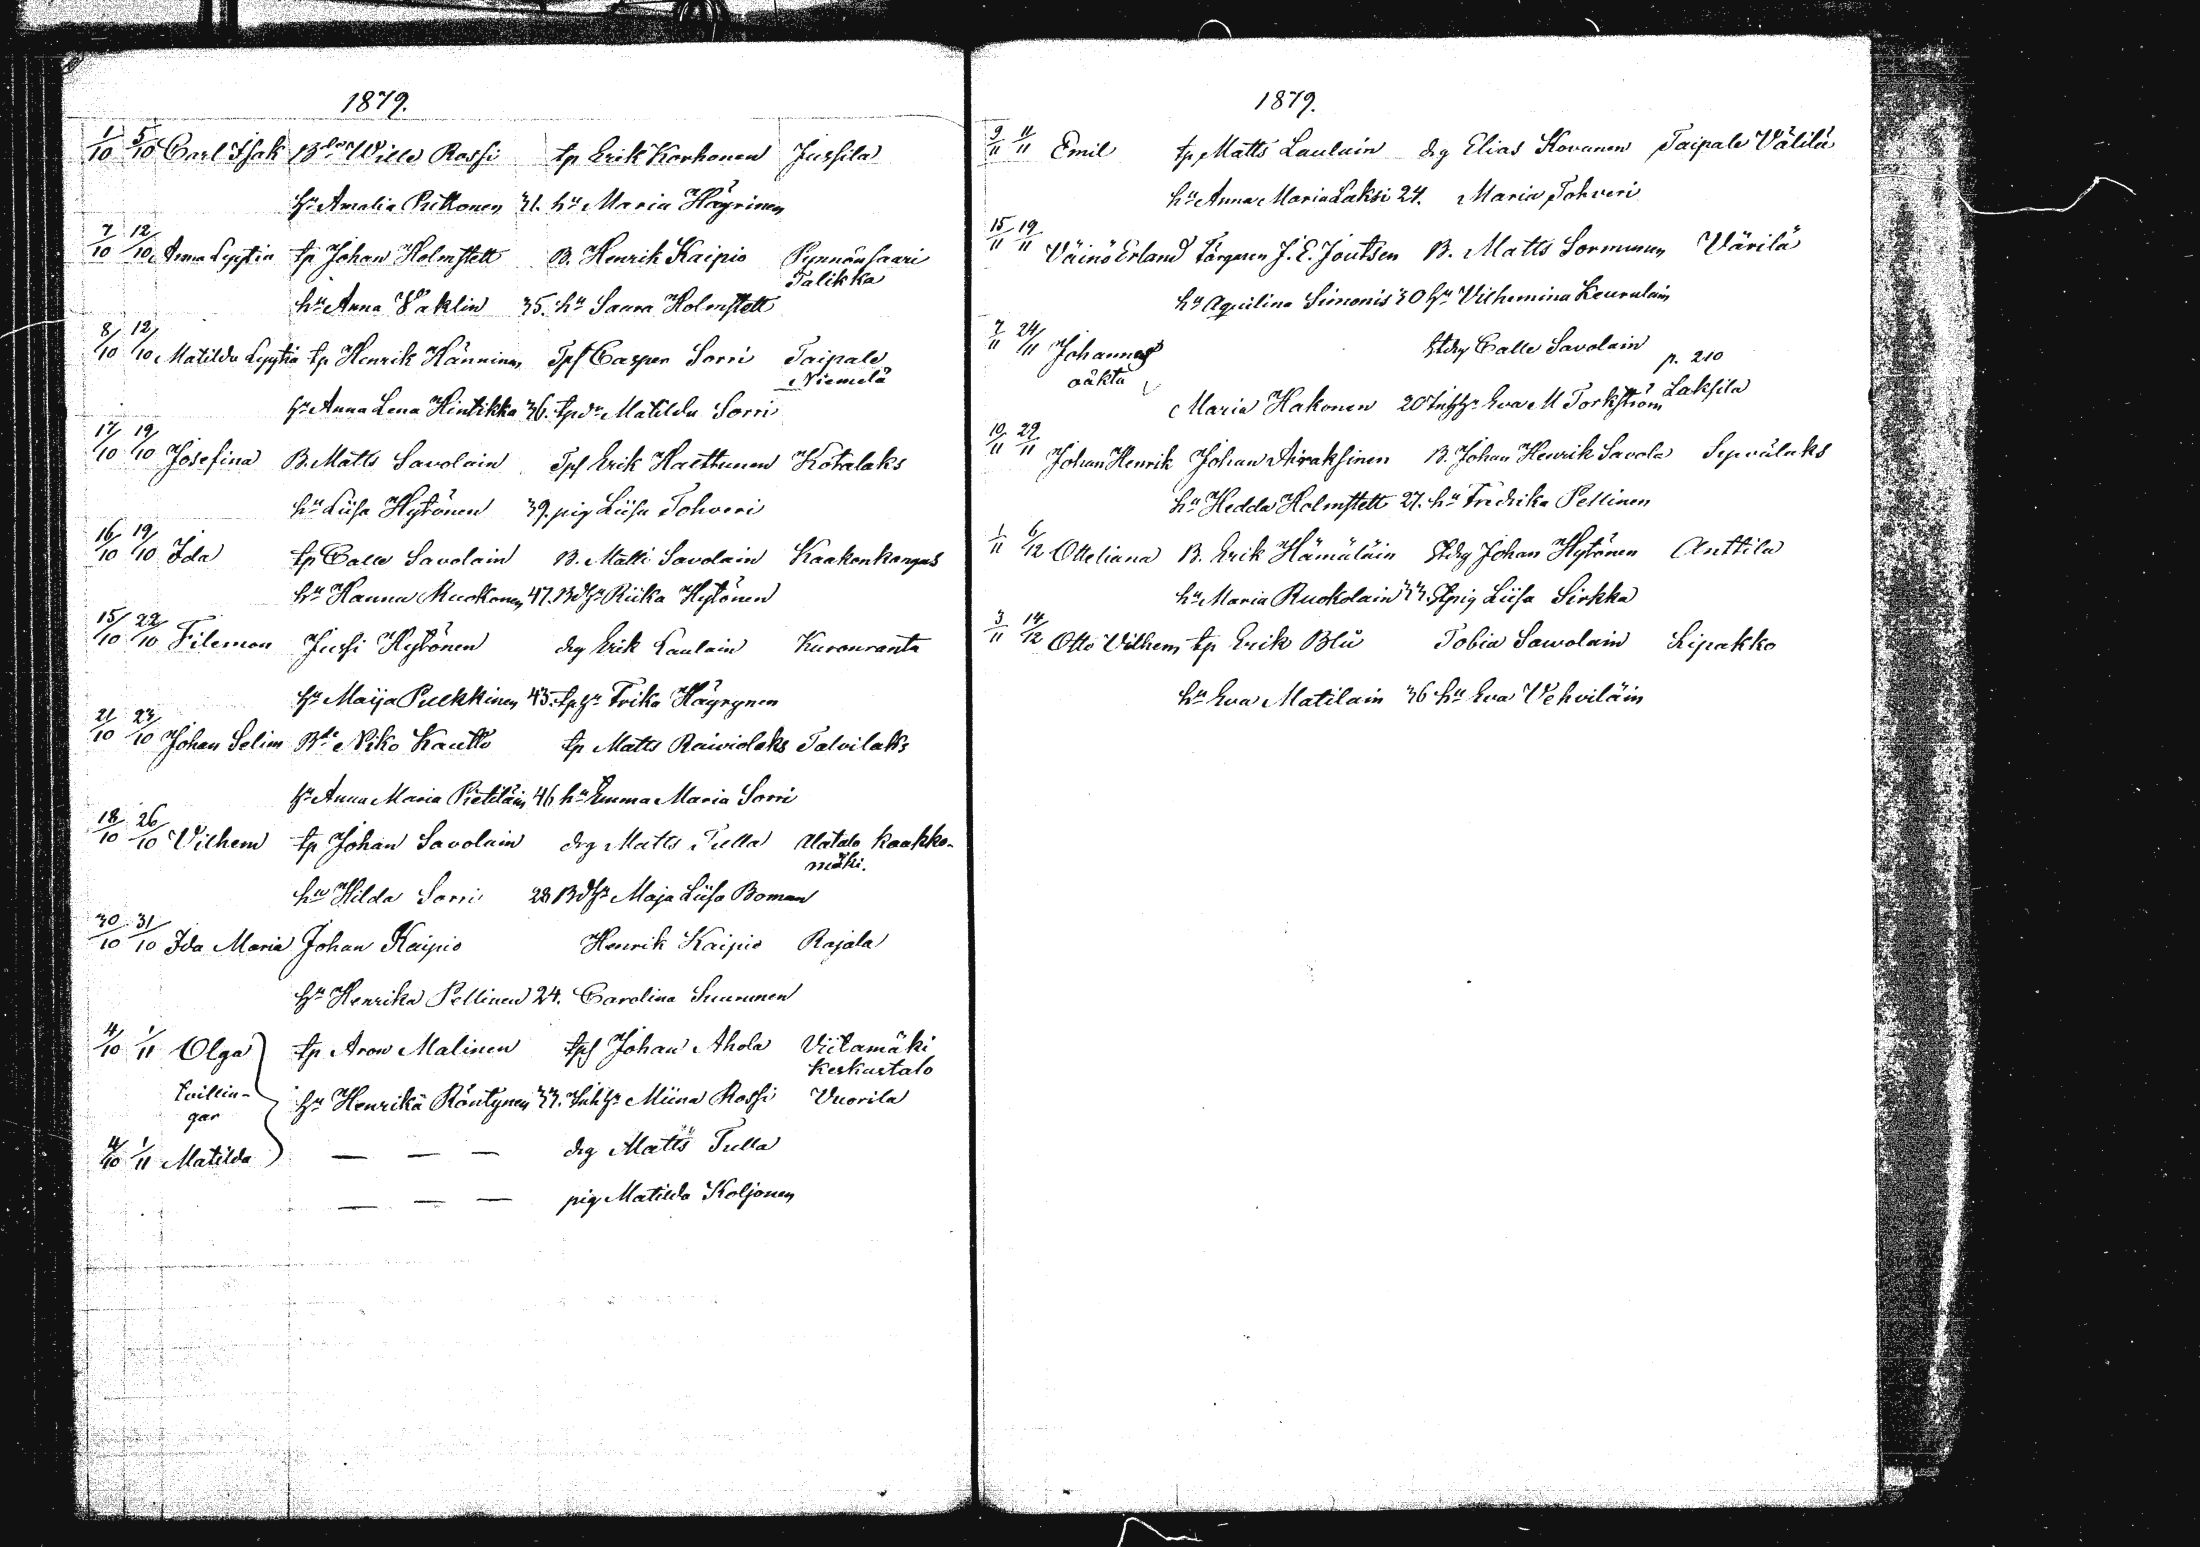 1879.
1/10 5/10 Carl Isak Wille Rossi tp Erik Korhonen Jussila
hu Amalia Pitkonen 31. hu Maria Häyrinen
7/10 12/10 Anna Lyytia tp Johan Holmstett B. Henrik Kaipio Pynnönsaari
Talikka
hu Anna Vaklin 35. hu Saara Holmstett
8/10 12/10 Matilda Lyytia tp Henrik Hänninen Tpf Casper Sorri Taipale
Niemelä
hu Anna Lena Hintikka 36. Matilda Sorri
17/10 19/10 Josefina B. Matts Savolain Tpf Erik Hacttunen Kotalaks
hu Liisa Hytönen 39. pig Liisa Tohveri
16/10 19/10 Ida tp Calle Savolain B. Matti Savolain Kaakonkangas
hu Hanna Ruokonen 47. Riika Hytönen
15/10 22/10 Filemon Jussi Hytönen drg Erik Laulain Kuronranta
hu Maija Pulkkinen 43. Frika Häyrynen
21/10 23/10 Johan Selim Niko Kautto tp Matts Raiviolaks Talvilaks
hu Anna Maria Pietiläin 46 hu Emma Maria Sorri
18/10 26/10 Vilhem tp Johan Savolain drg Matts Tulla Alatalo Kaakko-
mäki.
hu Hilda Sorri 28 Maja Liisa Boman
30/10 31/10 Ida Maria Johan Kaipio Henrik Kaipio Rajala
hu Henrika Pellinen 24. Carolina Suurunen
4/10 1/11 Olga tp Aron Malinen tpf Johan Ahola Viitamäki
Keskustalo
tvillin-
gar
hu Henrika Röntynen 33. Miina Rossi Vuorila
4/10 1/11 Matilda — — — drg Matts Tulla
— — — pig Matilda Koljonen
1879.
9/11 11/11 Emil tp Matts Laulain drg Elias Kovanen Taipale Välilä
hu Anna Maria Laksi 24. Maria Tohveri
15/11 19/11 Väinö Erland Färgaren J. E. Joutsen B. Matts Sormunen Värilä
hu Aquilina Simonis 30 hu Vilhemina Keuralain
7/11 24/11 Johannes Calle Savolain
p. 210
oäkta
Maria Hakonen 20 Eva M Torkström Laksila
10/11 29/11 Johan Henrik Johan Airaksinen B. Johan Henrik Savola Sepvälaks
hu Hedda Holmstett 27. hu Fredrika Pellinen
1/11 6/12 Otteliana B. Erik Hämäläin Johan Hytönen Anttila
hu Maria Ruokolain 33. Liisa Sirkka
3/11 14/12 Otto Vilhem tp Erik Blå Tobia Sawolain Lipakko
hu Eva Matilain 36 hu Eva Vehviläin